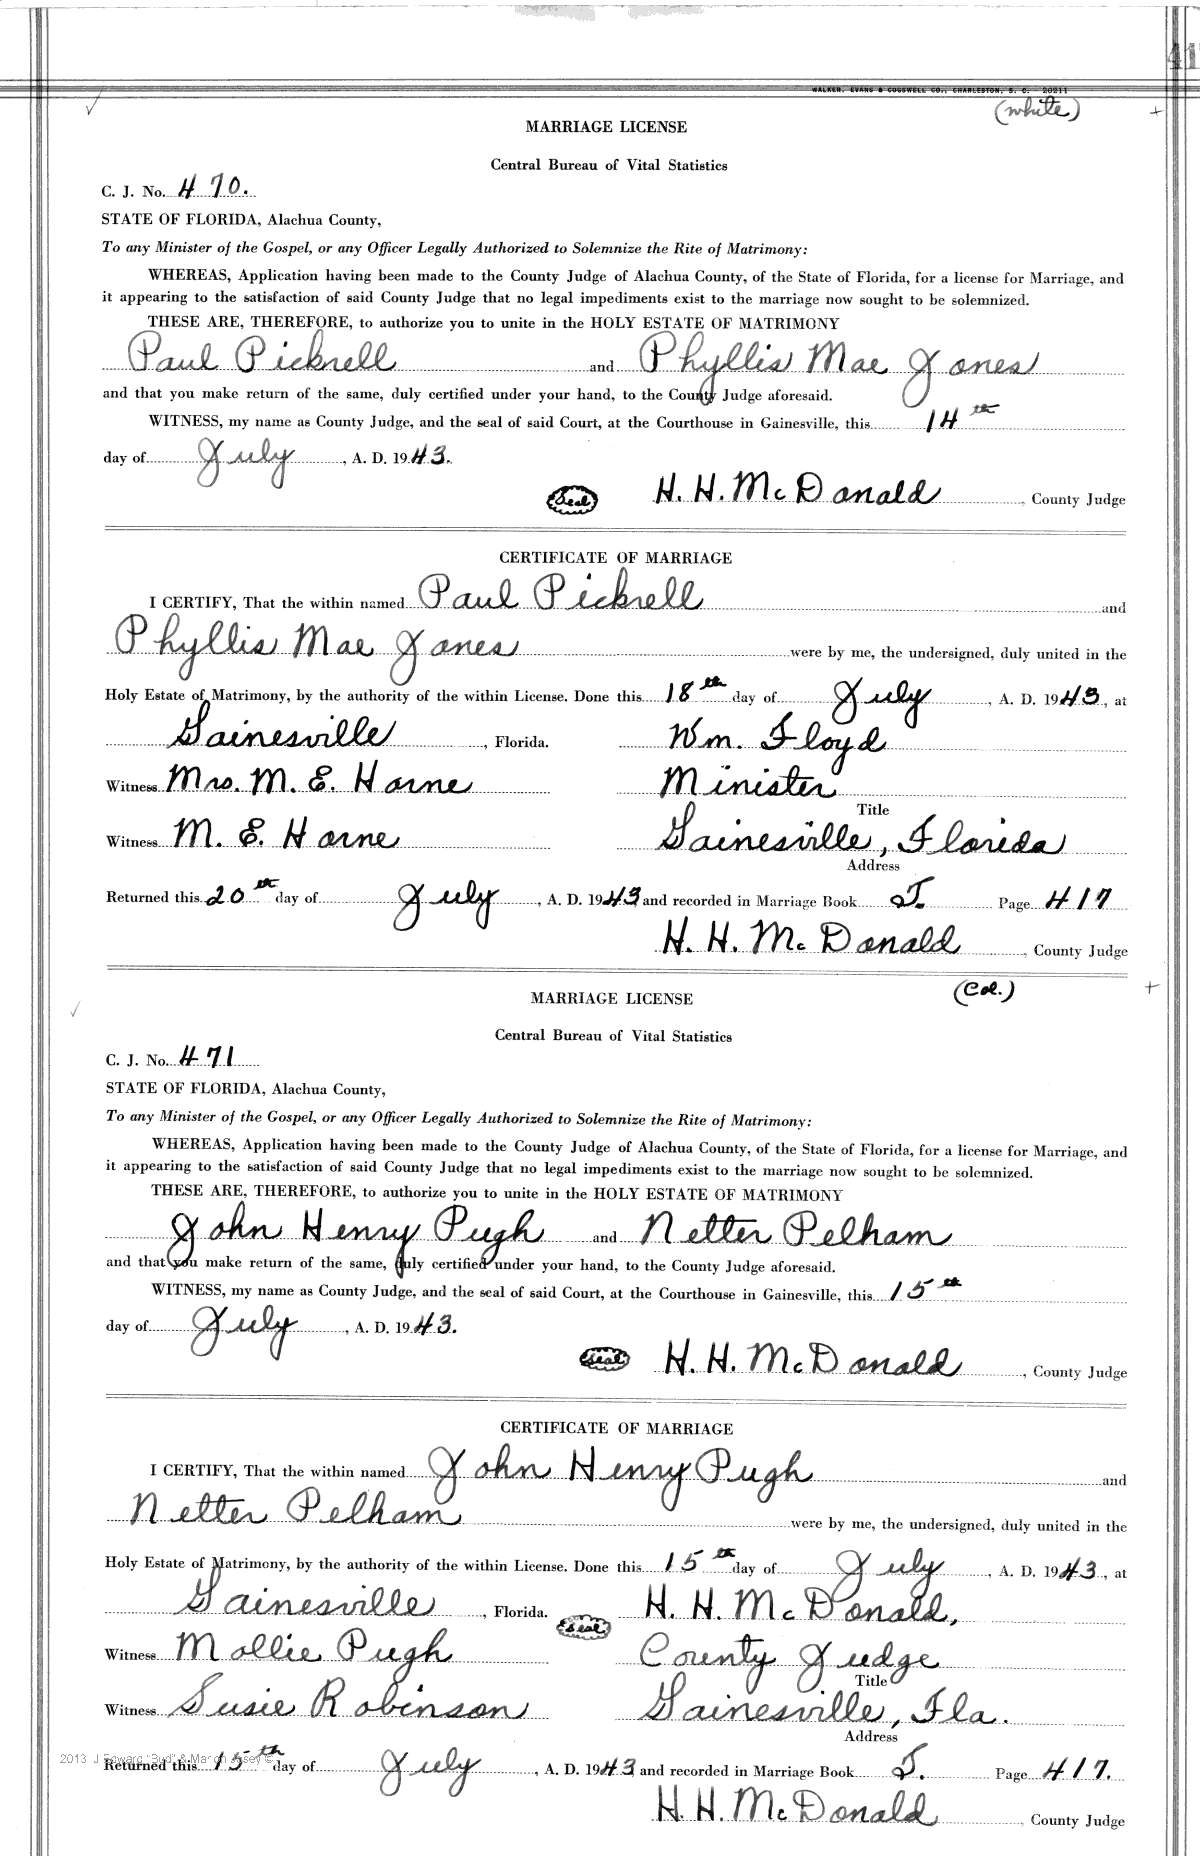 41
WALKER, EVANS & COGSWELL CO., CHARLESTON, S. C. 20211
(white)
MARRIAGE LICENSE
Central Bureau of Vital Statistics
C. J. No. 470.
STATE OF FLORIDA, Alachua County,
To any Minister of the Gospel, or any Officer Legally Authorized to Solemnize the Rite of Matrimony:
WHEREAS, Application having been made to the County Judge of Alachua County, of the State of Florida, for a license for Marriage, and
it appearing to the satisfaction of said County Judge that no legal impediments exist to the marriage now sought to be solemnized.
THESE ARE, THEREFORE, to authorize you to unite in the HOLY ESTATE OF MATRIMONY
Paul Picknell and Phyllis Mae Jones
and that you make return of the same, duly certified under your hand, to the County Judge aforesaid.
WITNESS, my name as County Judge, and the seal of said Court, at the Courthouse in Gainesville, this 14th
day of July, A. D. 1943.
Seal H. H. McDonald, County Judge
CERTIFICATE OF MARRIAGE
I CERTIFY, That the within named Paul Picknell and
Phyllis Mae Jones were by me, the undersigned, duly united in the
Holy Estate of Matrimony, by the authority of the within License. Done this 18th day of July, A. D. 1943, at
Gainesville, Florida. Wm. Floyd
Witness Mrs. M. E. Horne Minister
Title
Witness M. E. Horne Gainesville, Florida
Address
Returned this 20th day of July, A. D. 1943 and recorded in Marriage Book T. Page 417
H. H. McDonald, County Judge
(Col.)
MARRIAGE LICENSE
Central Bureau of Vital Statistics
C. J. No. 471
STATE OF FLORIDA, Alachua County,
To any Minister of the Gospel, or any Officer Legally Authorized to Solemnize the Rite of Matrimony:
WHEREAS, Application having been made to the County Judge of Alachua County, of the State of Florida, for a license for Marriage, and
it appearing to the satisfaction of said County Judge that no legal impediments exist to the marriage now sought to be solemnized.
THESE ARE, THEREFORE, to authorize you to unite in the HOLY ESTATE OF MATRIMONY
John Henry Pugh and Netter Pelham
and that you make return of the same, duly certified under your hand, to the County Judge aforesaid.
WITNESS, my name as County Judge, and the seal of said Court, at the Courthouse in Gainesville, this 15th
day of July, A. D. 1943.
Seal H. H. McDonald, County Judge
CERTIFICATE OF MARRIAGE
I CERTIFY, That the within named John Henry Pugh and
Netter Pelham were by me, the undersigned, duly united in the
Holy Estate of Matrimony, by the authority of the within License. Done this 15th day of July, A. D. 1943, at
Gainesville, Florida. Seal H. H. McDonald,
Witness Mollie Pugh County Judge
Title
Witness Susie Robinson Gainesville, Fla.
Address
2013 J Edward "Bud" &
Returned this 15th day of July, A. D. 1943 and recorded in Marriage Book T. Page 417.
H. H. McDonald, County Judge